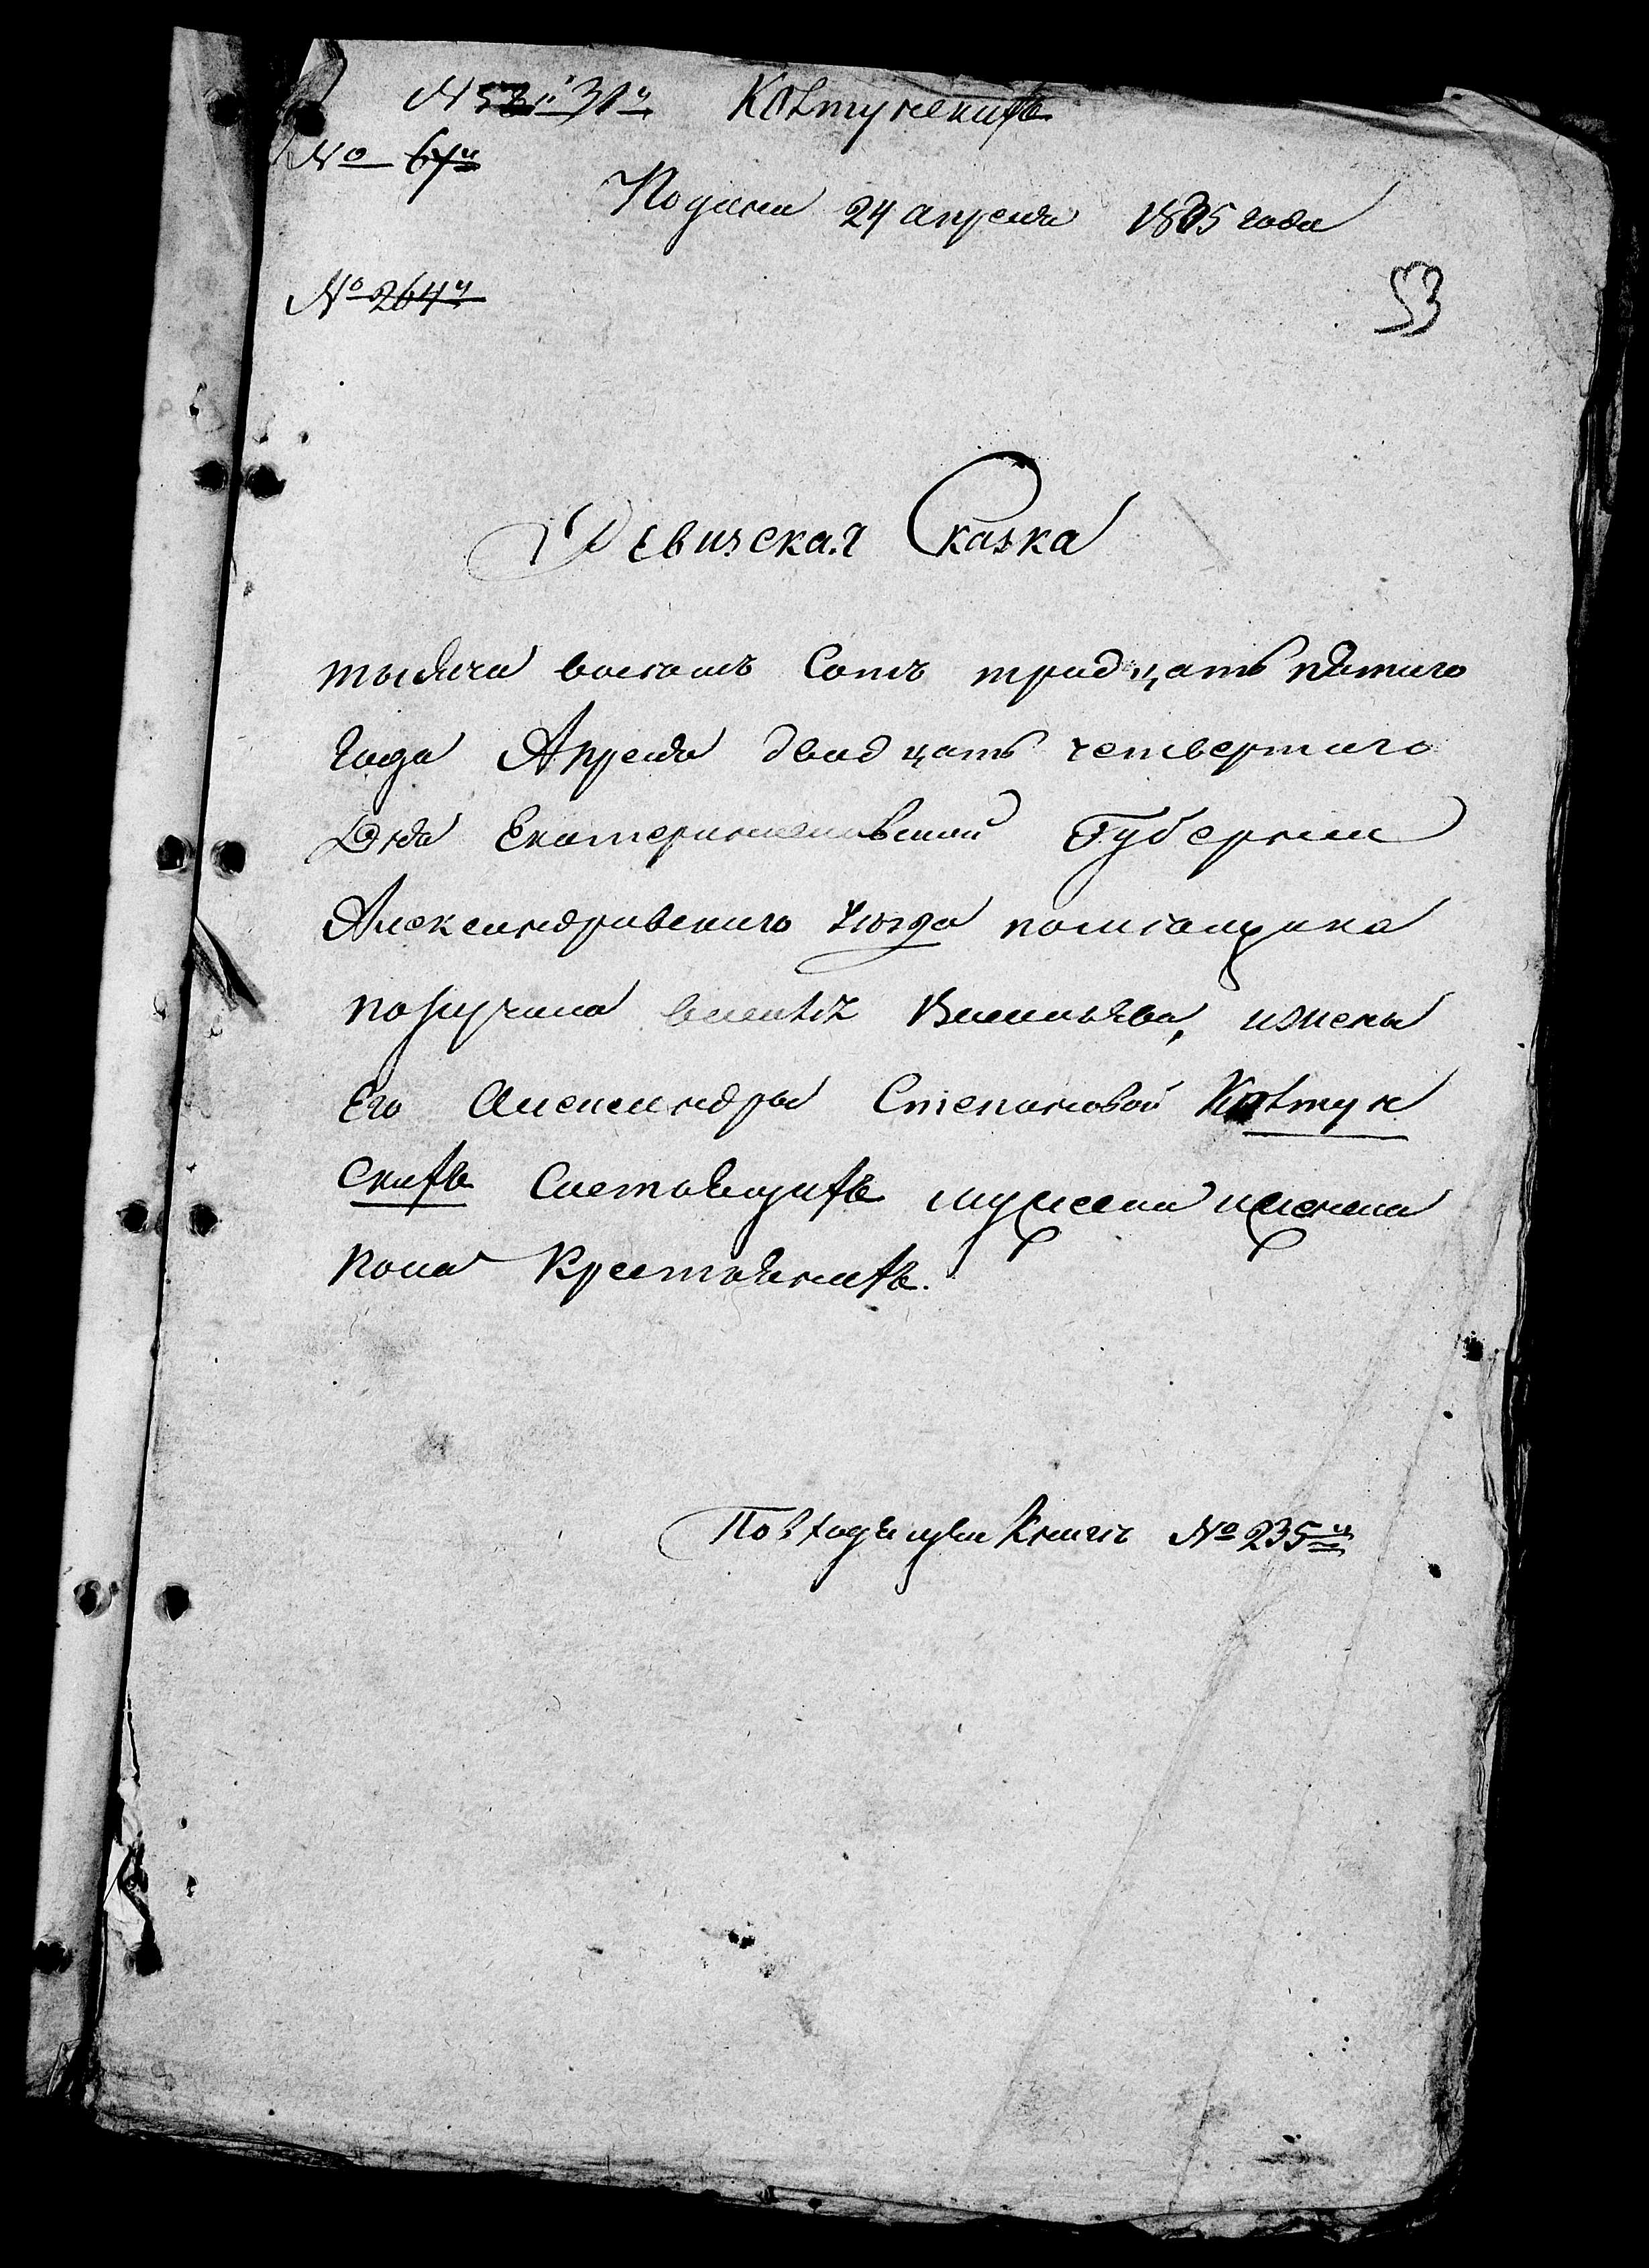 Ковтунскихъ
№ 67й
Подана 24 апреля 1835 года
№ 264й
53
Ревизская Сказка
тысяча восемь Сотъ тридцать пятаго
Года Апреля двадцать четвертаго
Дня Екатеринославской Губернии
Александровскаго уезда помещика
поручика Васильева, ижены
Его Александры Степановой Ковтун
скихъ Состоящихъ мужеска иженска
пола Крестьянахъ.
Повходящей Книге № 235й